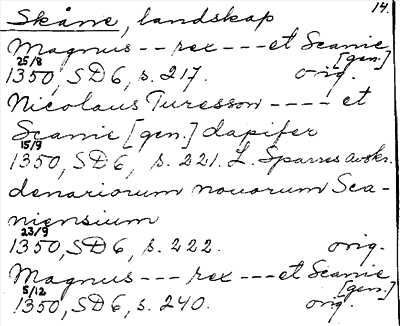 Skåne, landskap 14.
Magnus -- rex --- et Scanie
[gen.]
25/8
1350, SD 6, s. 217. orig.
Nicolaus Turesson ---- et
Scanie [gen.] dapifer
15/9
1350, SD 6, s. 221. L. Sparres avskr.
denariorum nouorum Sca-
niensium
23/9
1350, SD 6, s. 222. orig.
Magnus --- rex --- et Scanie
[gen.]
5/12
1350, SD 6, s. 240. orig.